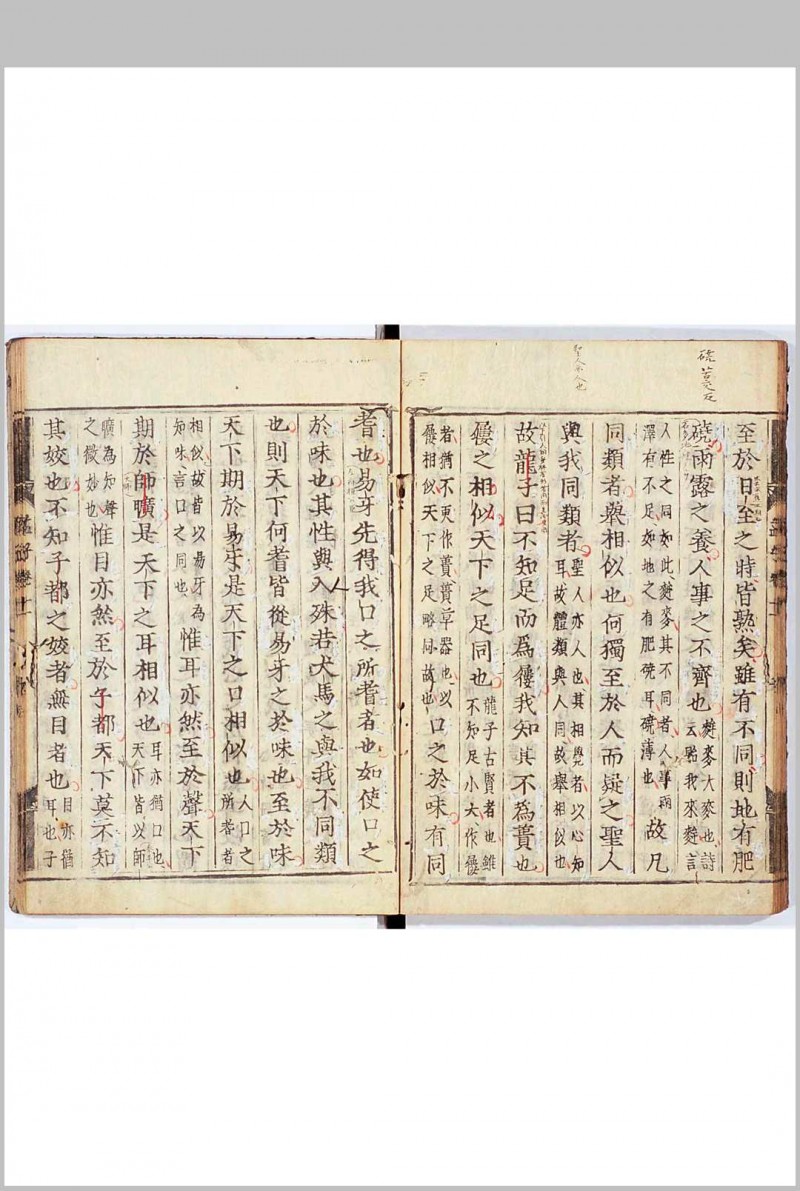 至於日至之時皆熟矣雖有不同則地有肥
磽雨露之養人事之不齊也
麰麥大麥也詩
云貽我來麰言
人性之同如此麰麥其不同者人事雨
澤有不足如地之有肥磽耳磽薄也
故凡
同類者舉相似也何獨至於人而疑之聖人
與我同類者
聖人亦人也其相覺者以心知
耳故體類與人同故舉相似也
故龍子曰不知足而爲屨我知其不爲蕢也
屨之相似天下之足同也
龍子古賢者也雖
不知足小大作屨
者猶不更作蕢蕢草器也以
屨相似天下之足略同故也
口之於味有同
耆也易牙先得我口之所耆者也如使口之
於味也其性與人殊若犬馬之與我不同類
也則天下何耆皆從易牙之於味也至於味
天下期於易牙是天下之口相似也
人口之
所耆者
相似故皆以易牙爲
知味言口之同也
惟耳亦然至於聲天下
期於師曠是天下之耳相似也
耳亦猶口也
天下皆以師
曠爲知聲
之微妙也
惟目亦然至於子都天下莫不知
其姣也不知子都之姣者無目者也
目亦猶
耳也子